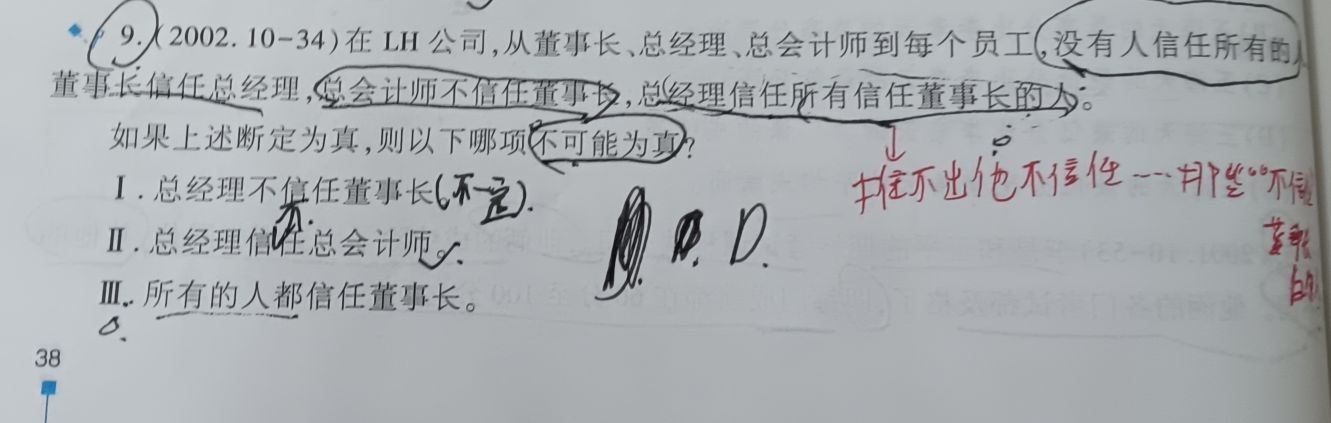 9.(2002.10-34)在 LH 公司,从董事长、总经理、总会计师到每个员工,没有人信任所有的人
董事长信任总经理,总会计师不信任董事长,总经理信任所有信任董事长的人。
如果上述断定为真,则以下哪项不可能为真?
推不出他不信任……那些"不信任
董事长
的人
Ⅰ.总经理不信任董事长(不一定).
不.
Ⅱ.总经理信任总会计师。
D.
Ⅲ.所有的人都信任董事长。
38